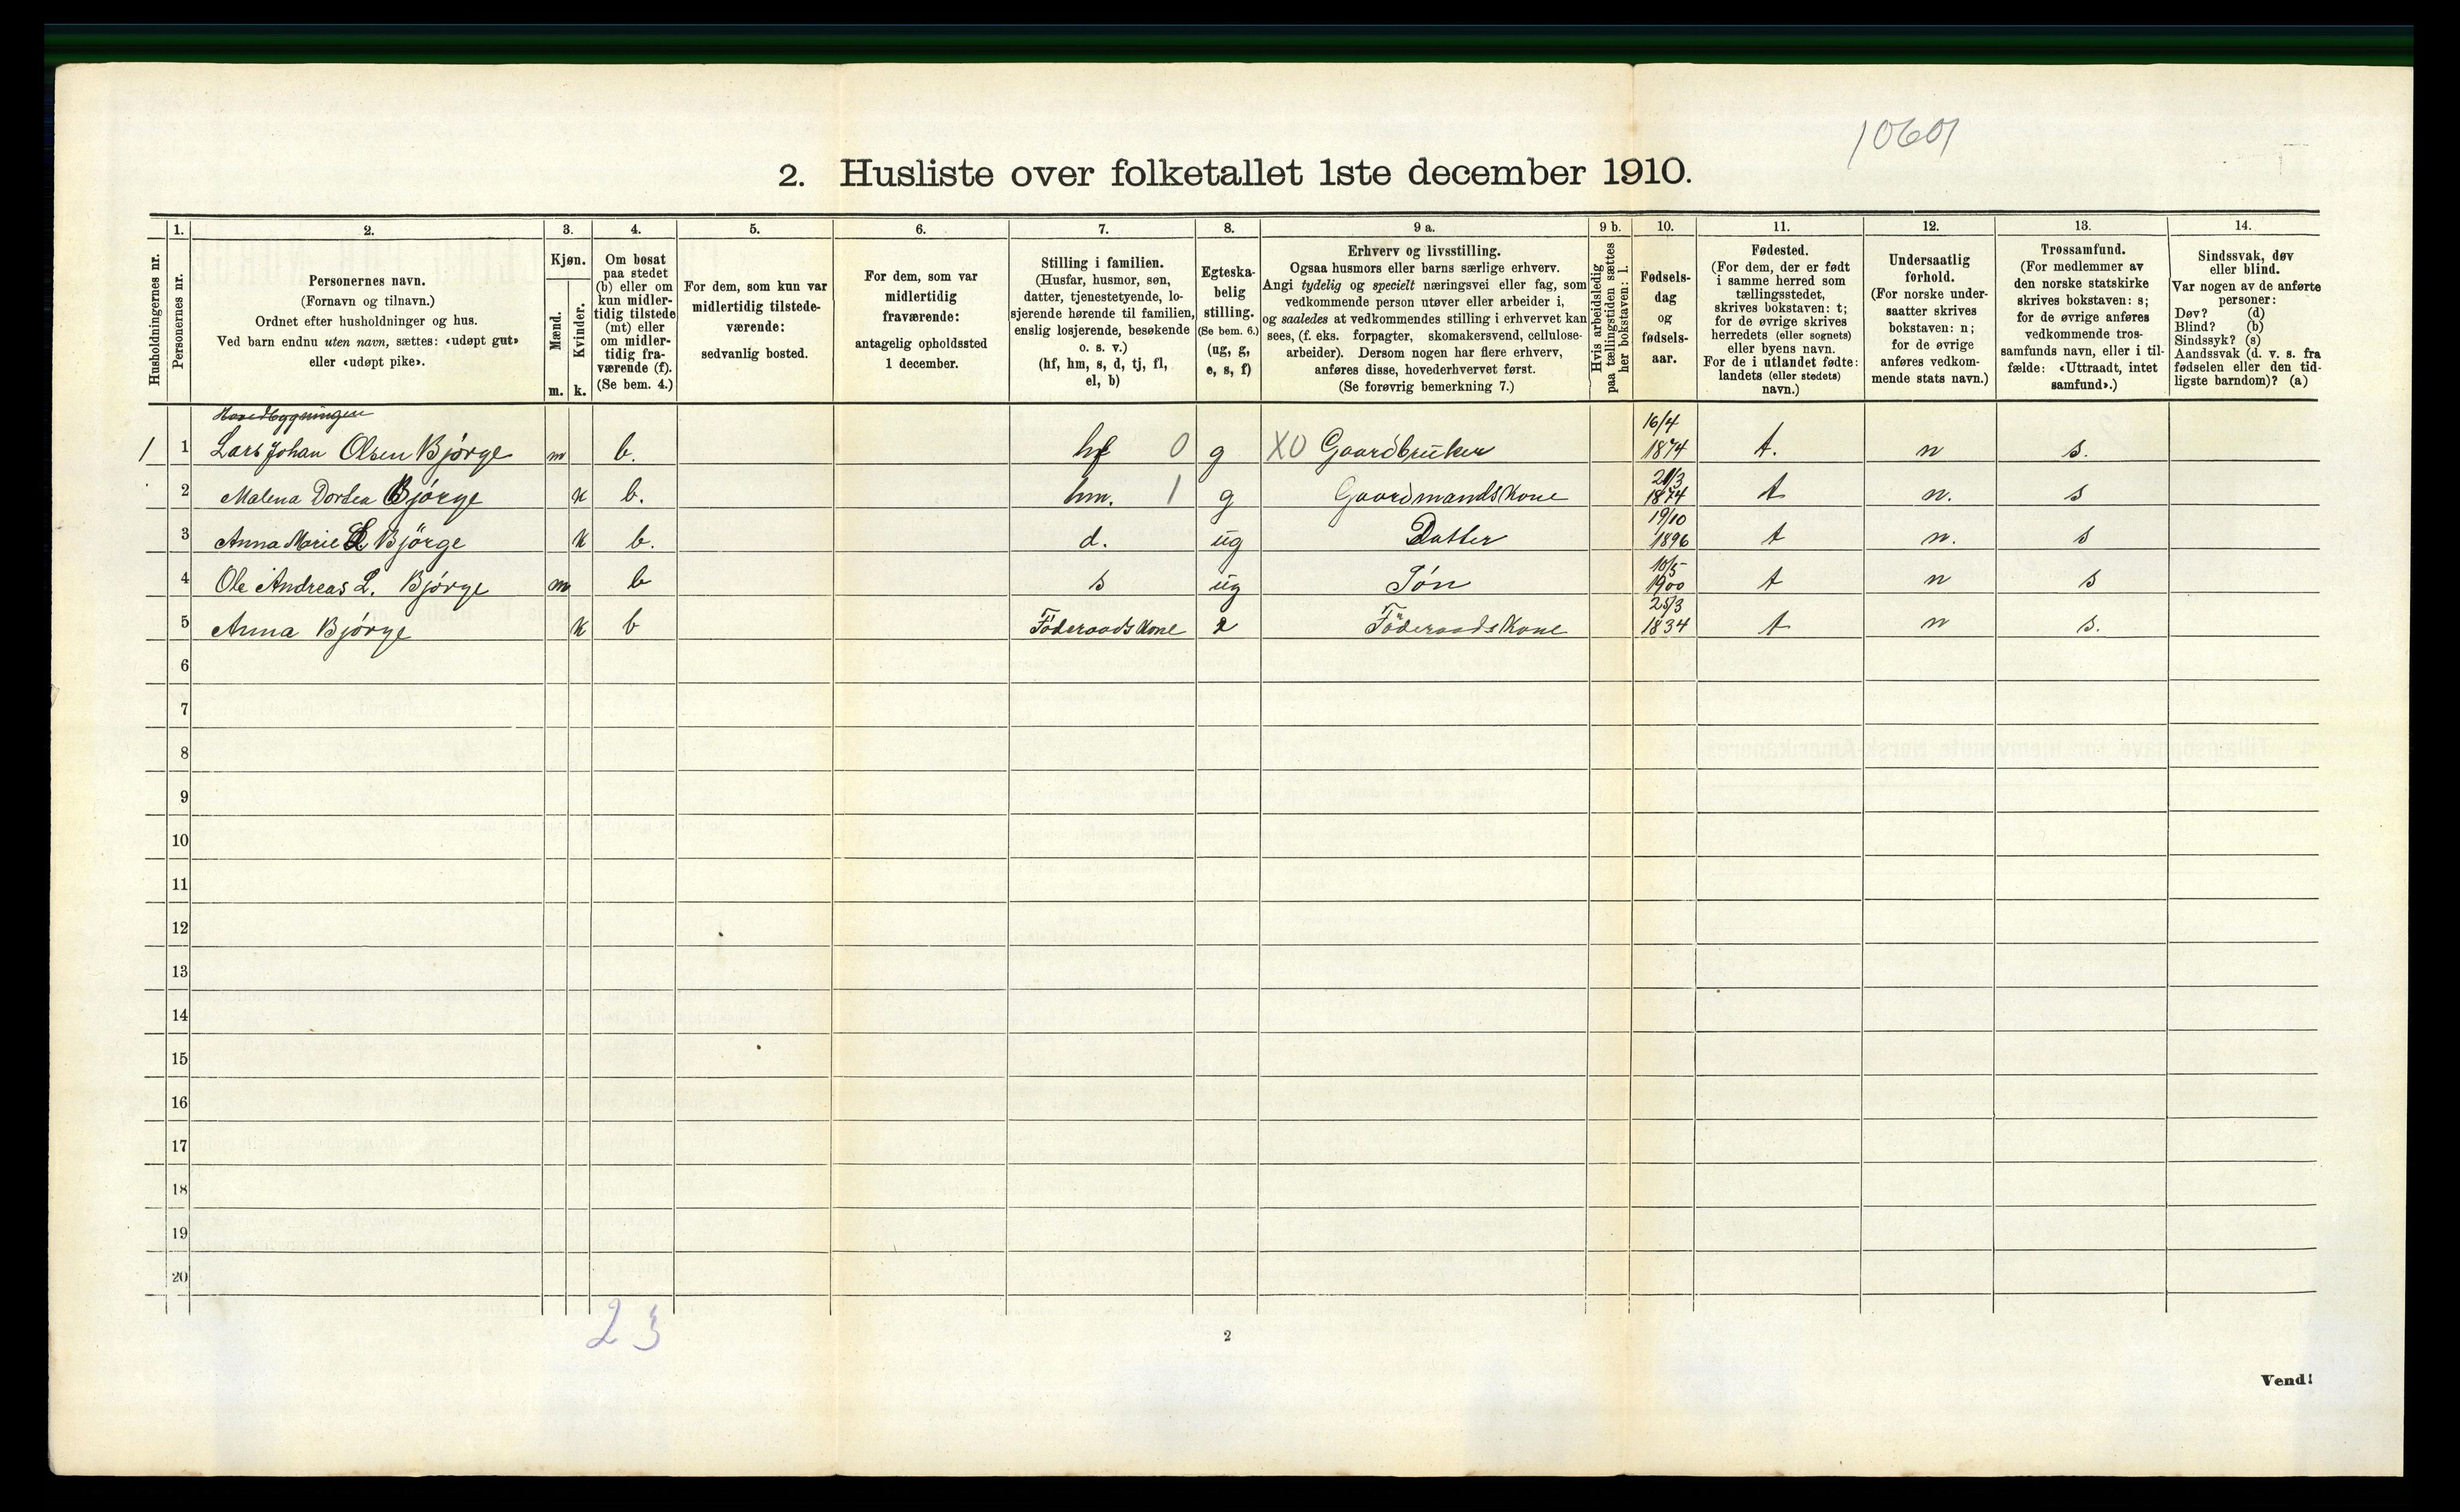 10601
2. Husliste over folketallet 1ste december 1910.
Husholdningernes nr.
1.
Personernes nr.
2.
Personernes navn.
(Fornavn og tilnavn.)
Ordnet efter husholdninger og hus.
Ved barn endnu uten navn, sættes: «udøpt gut»
eller «udøpt pike».
3.
Kjøn.
Mænd.
Kvinder.
m. k.
4.
Om bosat
paa stedet
(b) eller om
kun midler-
tidig tilstede
(mt) eller
om midler-
tidig fra-
værende (f).
(Se bem. 4.)
5.
For dem, som kun var
midlertidig tilstede-
værende:
sedvanlig bosted.
6.
For dem, som var
midlertidig
fraværende:
antagelig opholdssted
1 december.
7.
Stilling i familien.
(Husfar, husmor, søn,
datter, tjenestetyende, lo-
sjerende hørende til familien,
enslig losjerende, besøkende
o. s. v.)
(hf, hm, s, d, tj, fl,
el, b)
8.
Egteska-
belig
stilling.
(Se bem. 6.)
(ug, g,
e, s, f)
9 a.
Erhverv og livsstilling.
Ogsaa husmors eller barns særlige erhverv.
Angi tydelig og specielt næringsvei eller fag, som
vedkommende person utøver eller arbeider i,
og saaledes at vedkommendes stilling i erhvervet kan
sees, (f. eks. forpagter, skomakersvend, cellulose-
arbeider). Dersom nogen har flere erhverv,
anføres disse, hovederhvervet først.
(Se forøvrig bemerkning 7.)
9 b.
Hvis arbeidsledig
paa tællingstiden sættes
her bokstaven: l.
10.
Fødsels-
dag
og
fødsels-
aar.
11.
Fødested.
(For dem, der er født
i samme herred som
tællingsstedet,
skrives bokstaven: t;
for de øvrige skrives
herredets (eller sognets)
eller byens navn.
For de i utlandet fødte:
landets (eller stedets)
navn.)
12.
Undersaatlig
forhold.
(For norske under-
saatter skrives
bokstaven: n;
for de øvrige
anføres vedkom-
mende stats navn.)
13.
Trossamfund.
(For medlemmer av
den norske statskirke
skrives bokstaven: s;
for de øvrige anføres
vedkommende tros-
samfunds navn, eller i til-
fælde: «Uttraadt, intet
samfund».)
14.
Sindssvak, døv
eller blind.
Var nogen av de anførte
personer:
Døv? (d)
Blind? (b)
Sindssyk? (s)
Aandssvak (d. v. s. fra
fødselen eller den tid-
ligste barndom)? (a)
Hovedbygningen
1 1 Lars Johan Olsen Bjørge m b. hf 0 g X0 Gaardbruker 16/4 1874 t. n s.
2 Malena Dortea Bjørge k b. hm. 1 g Gaardmandskone 1874 t n. s
3 Anna Marie L Bjørge k b. d. ug Datter 19/10 1896 t n. s
4 Ole Andreas L. Bjørge m b s ug Søn 10/5 1900 t n s
5 Anna Bjørge k b Føderaadskone Føderaadskone 25/3 1834 t n s.
6
7
8
9
10
11
12
13
14
15
16
17
18
19
20
23
2
Vend!